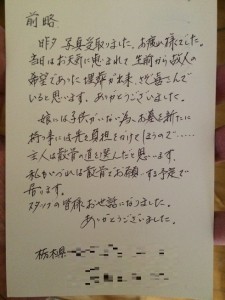 前略
昨夕写真受取りました。お疲れ様でした。
当日はお天気に恵まれて生前から故人の
希望であった埋葬が出来、さぞ喜んで
いると思います。ありがとうございました。
娘には子供がいない為、お墓を新たに
持つ事には先々負担をかけてしまうので……
主人は散骨の道を選んだと思います。
私もいづれは散骨でお願いする予定で
居ります。
スタッフの皆様お世話になりました。
ありがとうございました。
栃木県